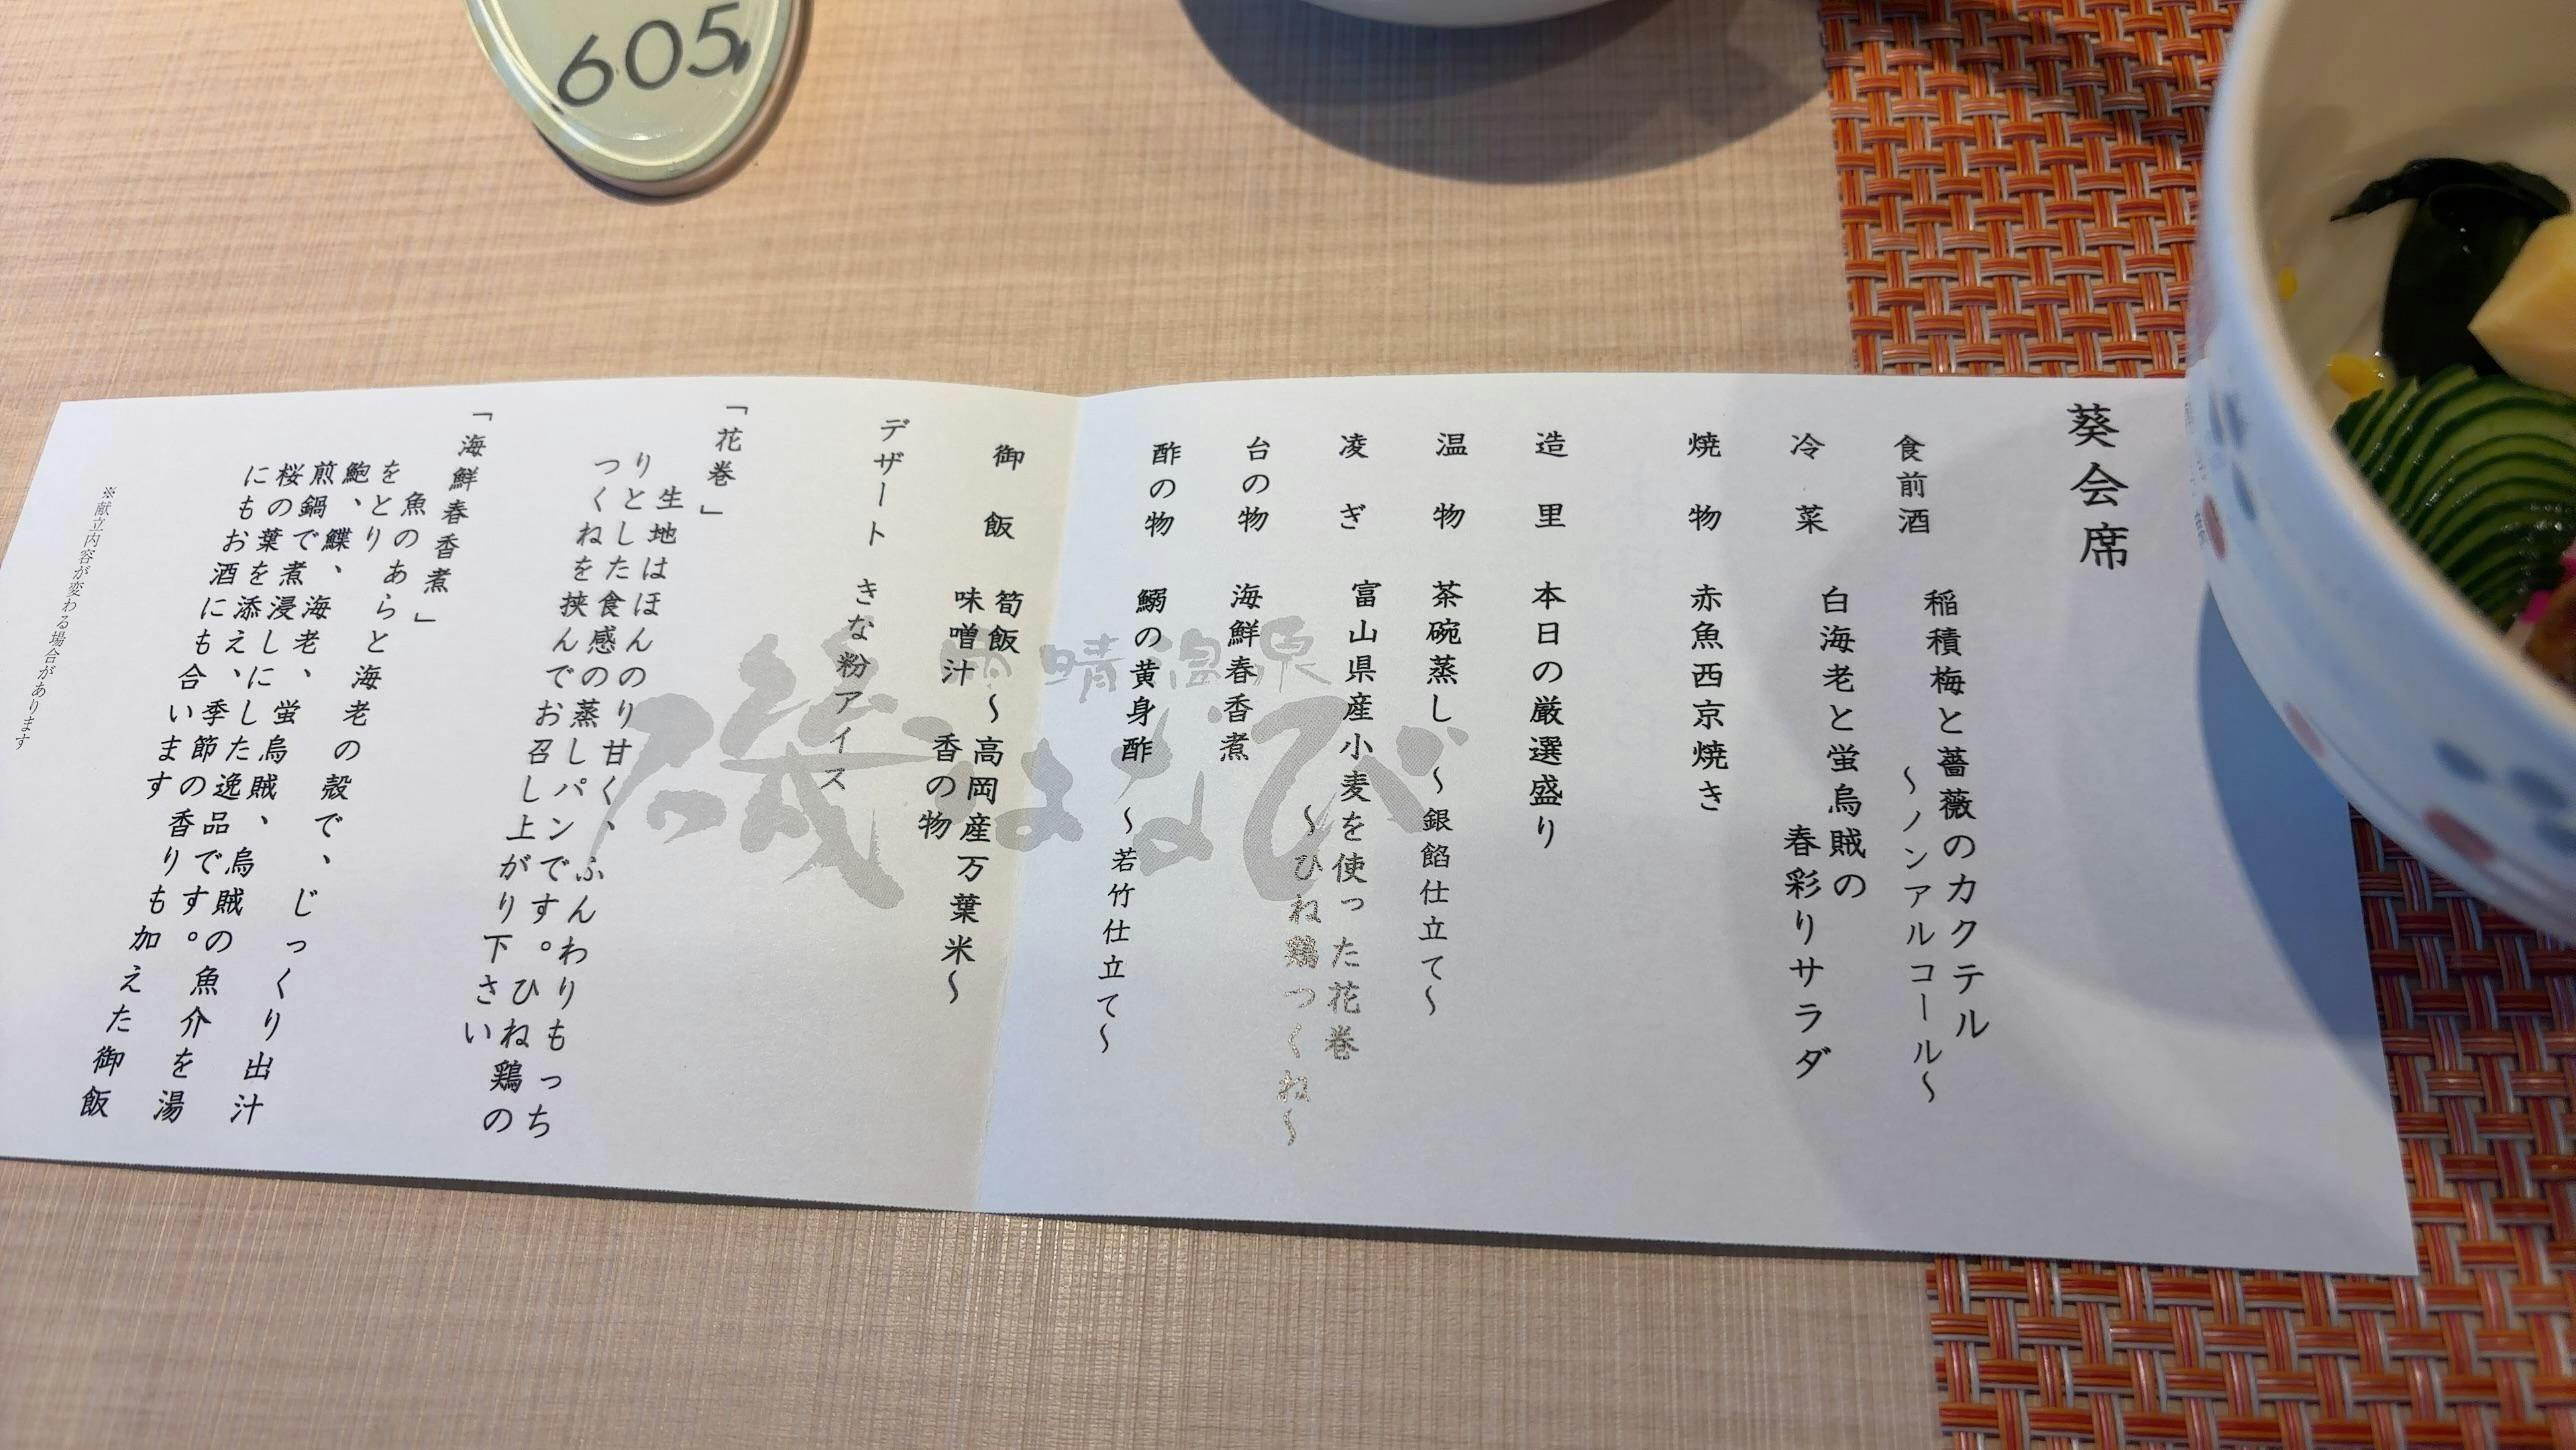 605
葵会席
食前酒 稲積梅と薔薇のカクテル
～ノンアルコール～
冷菜 白海老と蛍烏賊の
春彩りサラダ
焼物 赤魚西京焼き
造里 本日の厳選盛り
温物 茶碗蒸し ～銀餡仕立て～
凌ぎ 富山県産小麦を使った花巻
～ひね鶏つくね～
台の物 海鮮春香煮
酢の物 鰯の黄身酢 ～若竹仕立て～
御飯 筍飯 ～高岡産万葉米～
味噌汁 香の物
デザート きな粉アイス
「花巻」
生地はほんのり甘く、ふんわりもっち
りとした食感の蒸しパンです。ひね鶏の
つくねを挟んでお召し上がり下さい
「海鮮春香煮」
魚のあらと海老の殻で、じっくり出汁
をとり
鮑、鰈、海老、蛍烏賊、烏賊の魚介を湯
煎鍋で煮浸しにした逸品です。
桜の葉を添え、季節の香りも加えた御飯
にもお酒にも合います
※献立内容が変わる場合があります
雨晴温泉
磯はなび